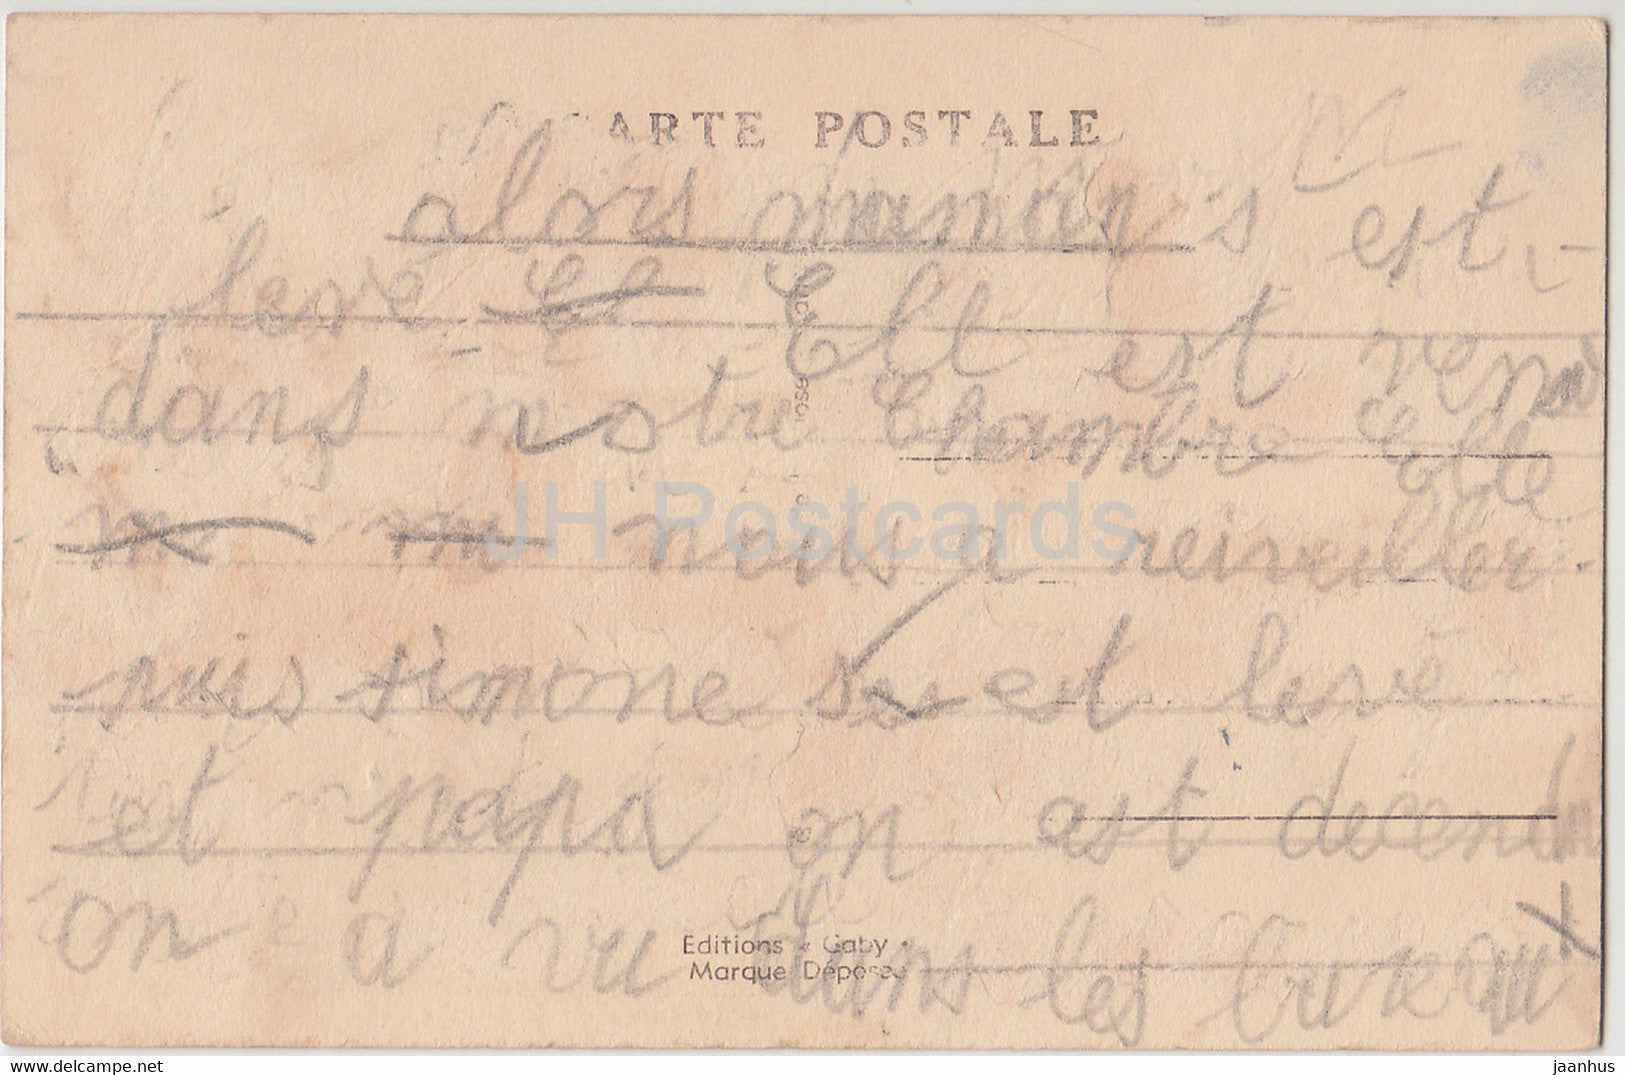 CARTE POSTALE
alors maman s est
levé Ell est venu
dans notre Chambre Elle
nous a reiveiller
puis simone s est levé
et papa on ast décend
on a vu dans les bureau
Editions « Gaby »
Marque Déposée
JH Postcards
delcampe.net
jaanhus